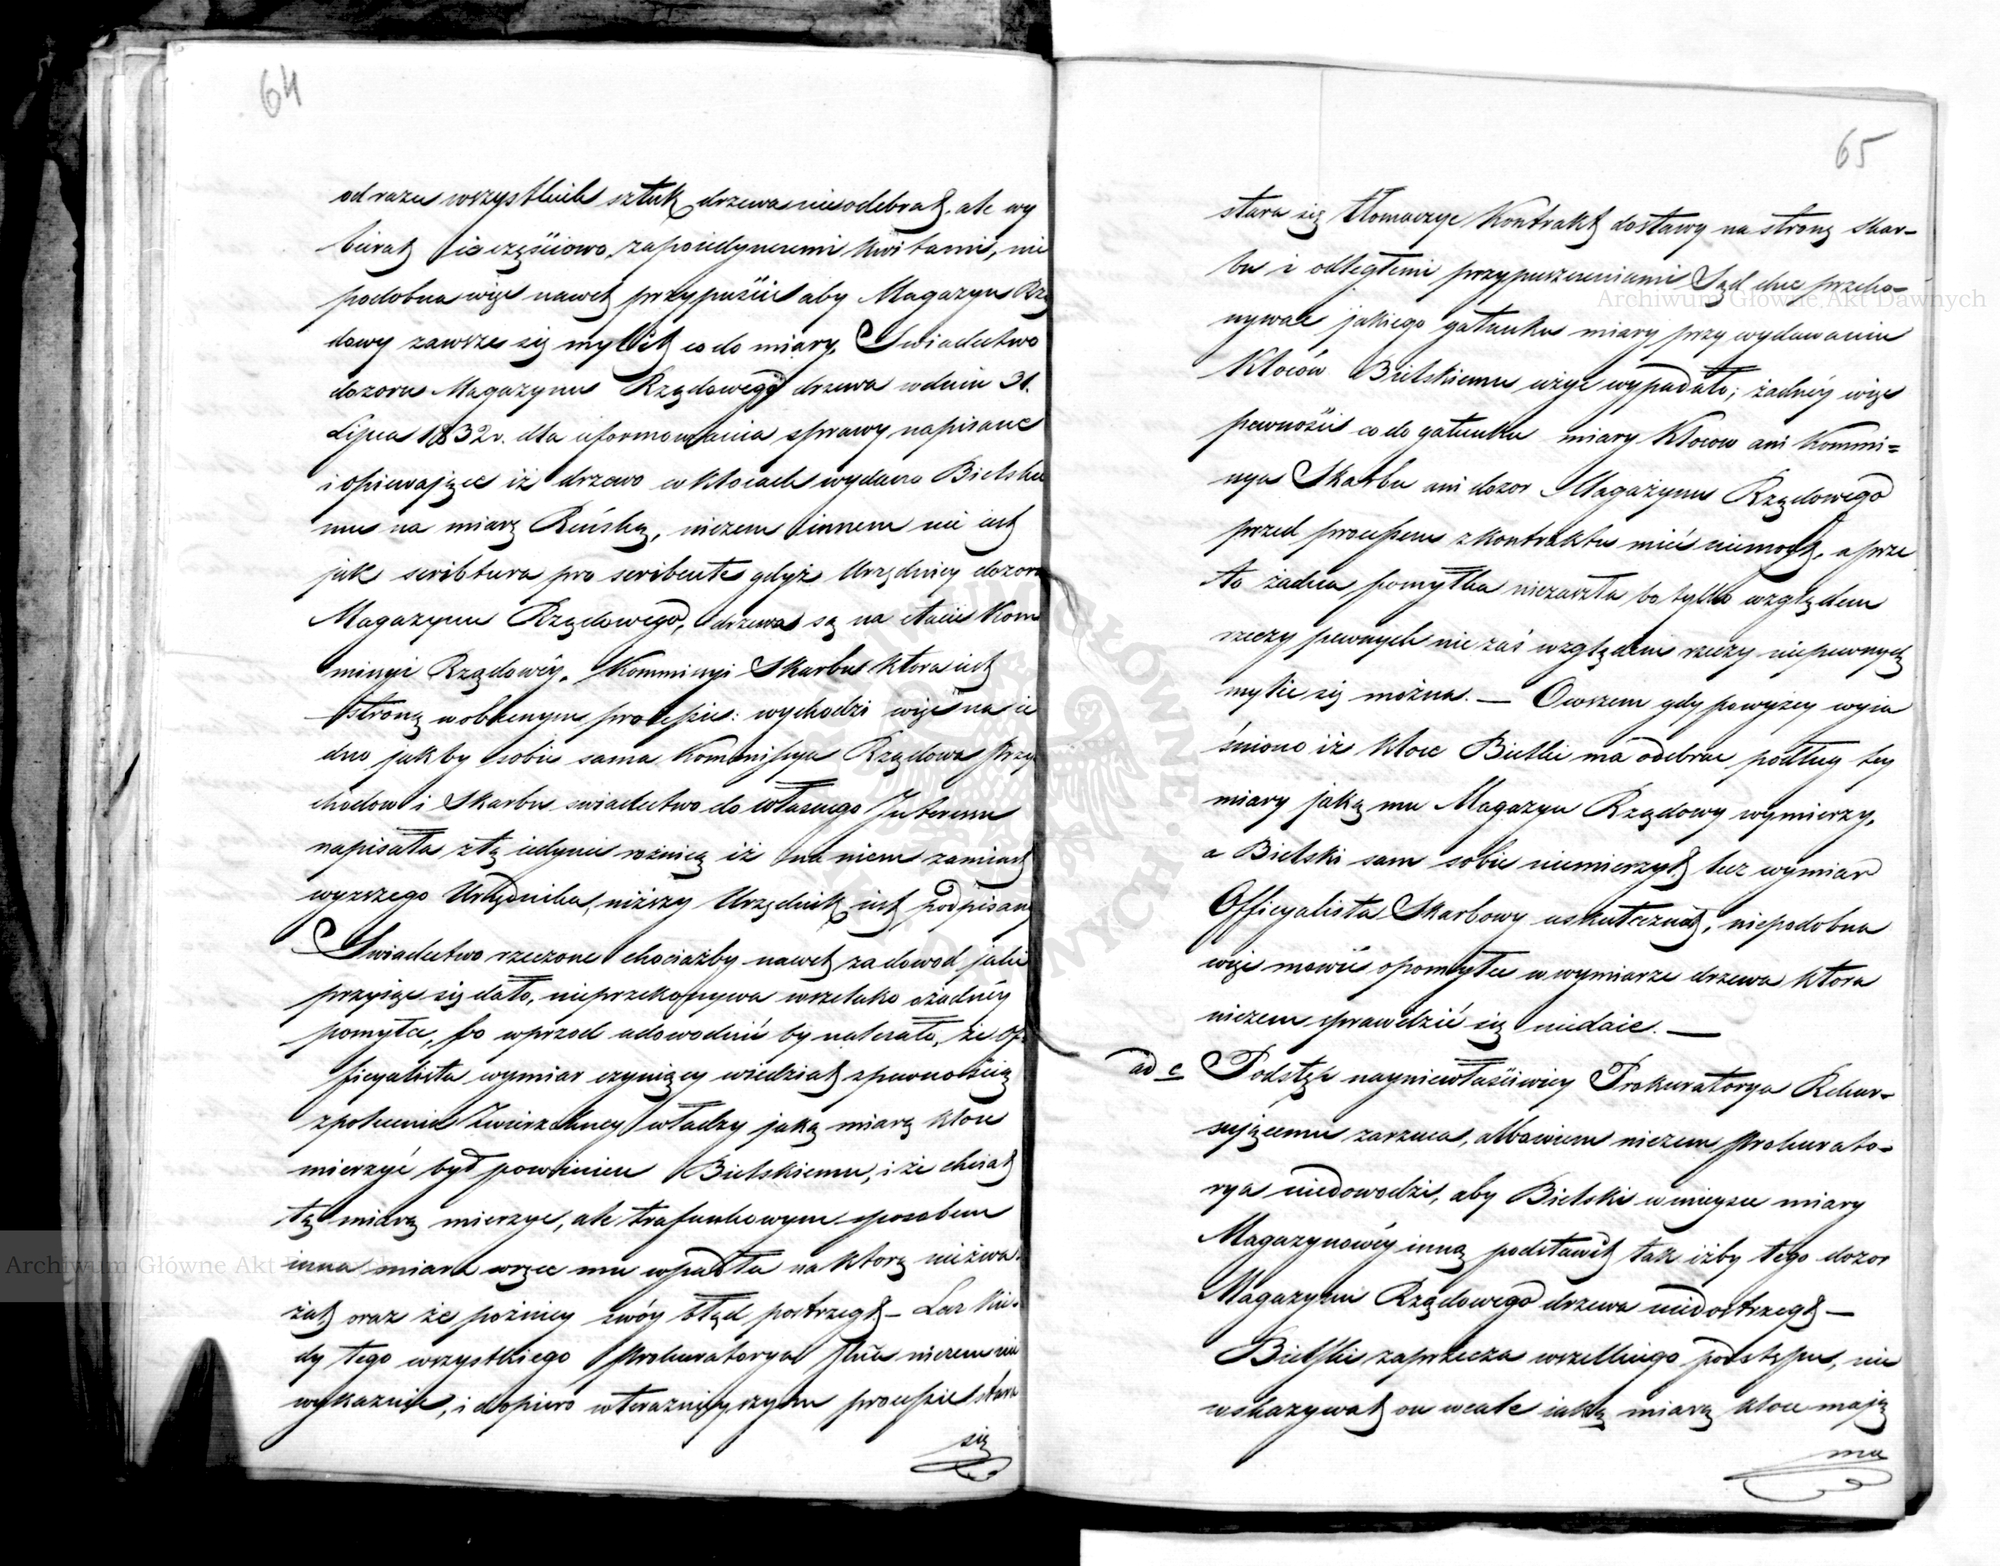 64
od razu wszystkich sztuk drzewa nie odebrał, ale wy
bierał ie częściowo, zapoiedynczemi kwitami, nie
podobna więc nawet przypuścić aby Magazyn Rzą
dowy zawsze się mylił co do miary. Swiadectwo
dozoru Magazynu Rządowego drzewa w dniu 31.
Lipca 1832 r. dla uformowania sprawy napisane
i opiewające iż drzewo w kłocach wydano Bielskie
mu na miarę Reńską, niczem innem nie iest
jak scribtura pro scribente gdyż Urzędnicy dozoru
Magazynu Rządowego, drzewa są na etacie Kom
missyi Rządowéy. Kommissyi Skarbu która iest
stroną wobecnym processie: wychodzi więc na ie
dno, jakby sobie sama Kommissya Rządowa Przy
chodow i Skarbu swiadectwo do własnego Interessu
napisała ztą iedynie różnicą iż na niem zamiast
wyższego Urzędnika, niższy Urzędnik iest podpisany
Swiadectwo rzeczone chociażby nawet za dowod jaki
przyiąc się dało, nieprzekonywa wszelako o żadnéy
pomyłce, bo wprzod udowodnić by należało, że Of-
ficyalista wymiar czyniący wiedział z pewnością
zpolecenia Zwierzchney władzy jaką miarą kłoce
mierzyć był powinien Bielskiemu, i że chciał
tą miarą mierzyc, ale trafunkowym sposobem
inna miara wręce mu wpadła na którą nie zwa-
żał oraz że pożniey swóy błąd postrzegł – Lecz kie-
dy tego wszystkiego Prokuratorya niczem nie
wykazuie, i dopiero wteraznieyszym processie stara
się
65
stara się tłomaczyc Kontrakt dostawy na stronę skar-
bu i odległemi przypuszczeniami Sąd chce przeko-
nywac jakiego gatunku miary przy wydawaniu
Kłoców Bielskiemu użyc wypadało; żadnéy więc
pewności co do gatunku miary Kłocow ani Kommis=
sya Skarbu ani dozor Magazynu Rządowego
przed processem z kontraktu mieć niemogł, a prze
to żadna pomyłka niezaszła bo tylko względem
rzeczy pewnych nie zaś względem rzeczy niepewnych
mylic się można. — Owszem gdy powyzey wyia
śniono iż kłoce Bielski ma odebrac podług tey
miary jaką mu Magazyn Rządowy wymierzy,
a Bielski sam sobie niemierzył lecz wymiar
Officyalista Skarbowy uskuteczniał, niepodobna
więc mowić o pomyłce w wymiarze drzewa która
niczem sprawdzić się niedaie. —
ad c Podstęp nayniewłaściwiey Prokuratorya Rekur-
suiącemu zarzuca, albowiem niczem Prokurato-
rya niedowodzi, aby Bielski w mieysce miary
Magazynowéy inną podstawił tak iżby tego dozor
Magazynu Rządowego drzewa niedostrzegł —
Bielski zaprzecza wszelkiego podstępu, nie
wskazywał on wcale iaką miarą kłoce mają
mu
Archiwum Główne Akt Dawnych